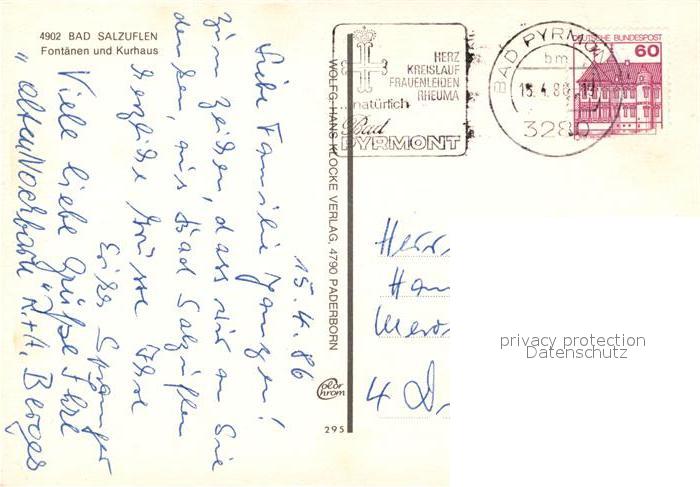 4902 BAD SALZUFLEN
Fontänen und Kurhaus
15.4.86
Liebe Familie
Zum Zeichen, dass wir an Sie
denken, aus Bad Salzuflen
herzliche Grüsse Ihre
Viele liebe Grüße Ihre
"alten Nachbarn" R.+H. Berges
WOLFG.-HANS KLOCKE VERLAG, 4790 PADERBORN
color chrom
295
HERZ
KREISLAUF
FRAUENLEIDEN
RHEUMA
natürlich
Bad
PYRMONT
BAD PYRMONT
bm
15.4.86
3280
DEUTSCHE BUNDESPOST
60
Herr
4 D
privacy protection
Datenschutz